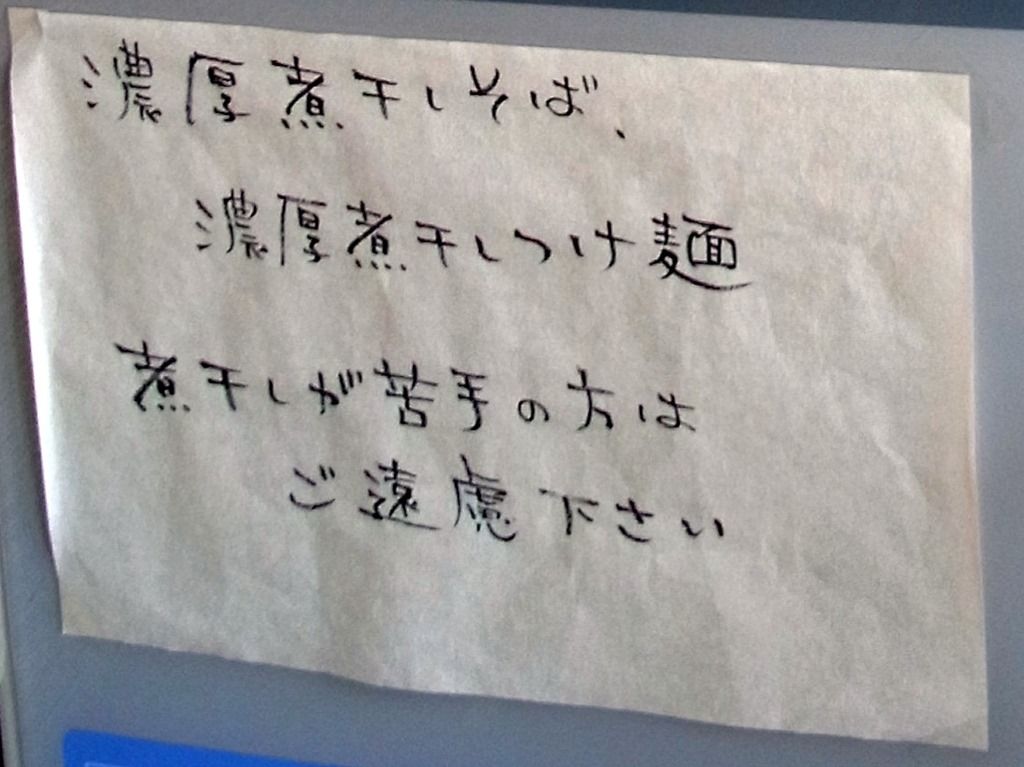 濃厚煮干しそば、
濃厚煮干しつけ麺
煮干しが苦手の方は
ご遠慮下さい